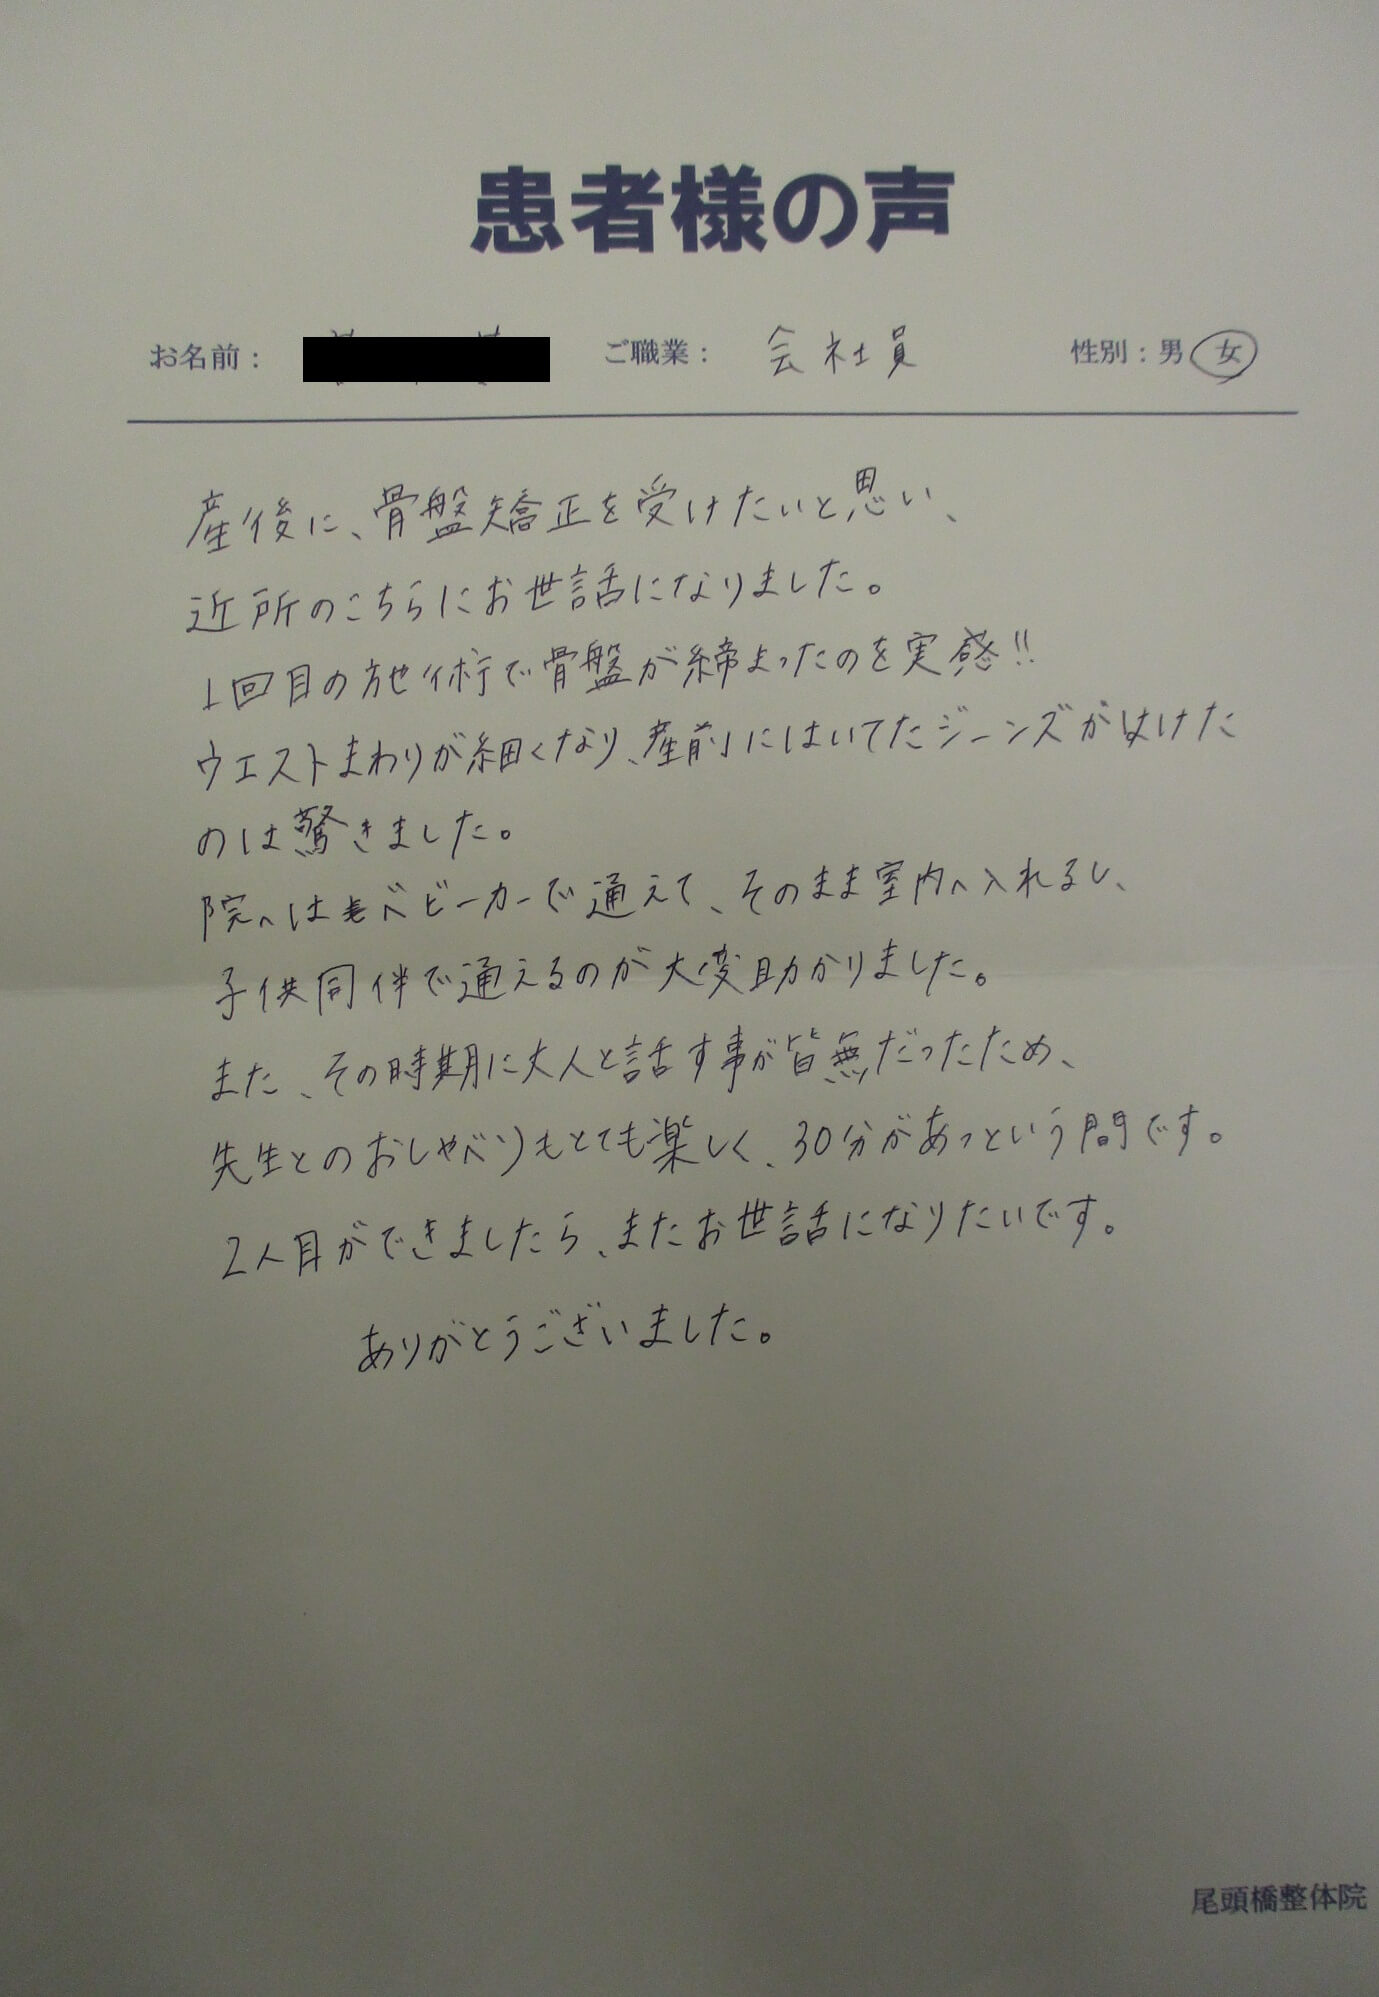 患者様の声
お名前： ご職業： 会社員 性別：男 女
産後に、骨盤矯正を受けたいと思い、
近所のこちらにお世話になりました。
1回目の施術で骨盤が締まったのを実感!!
ウエストまわりが細くなり、産前にはいてたジーンズがはけた
のは驚きました。
院へはベビーカーで通えて、そのまま室内へ入れるし、
子供同伴で通えるのが大変助かりました。
また、その時期に大人と話す事が皆無だったため、
先生とのおしゃべりもとても楽しく、30分があっという間です。
2人目ができましたら、またお世話になりたいです。
ありがとうございました。
尾頭橋整体院